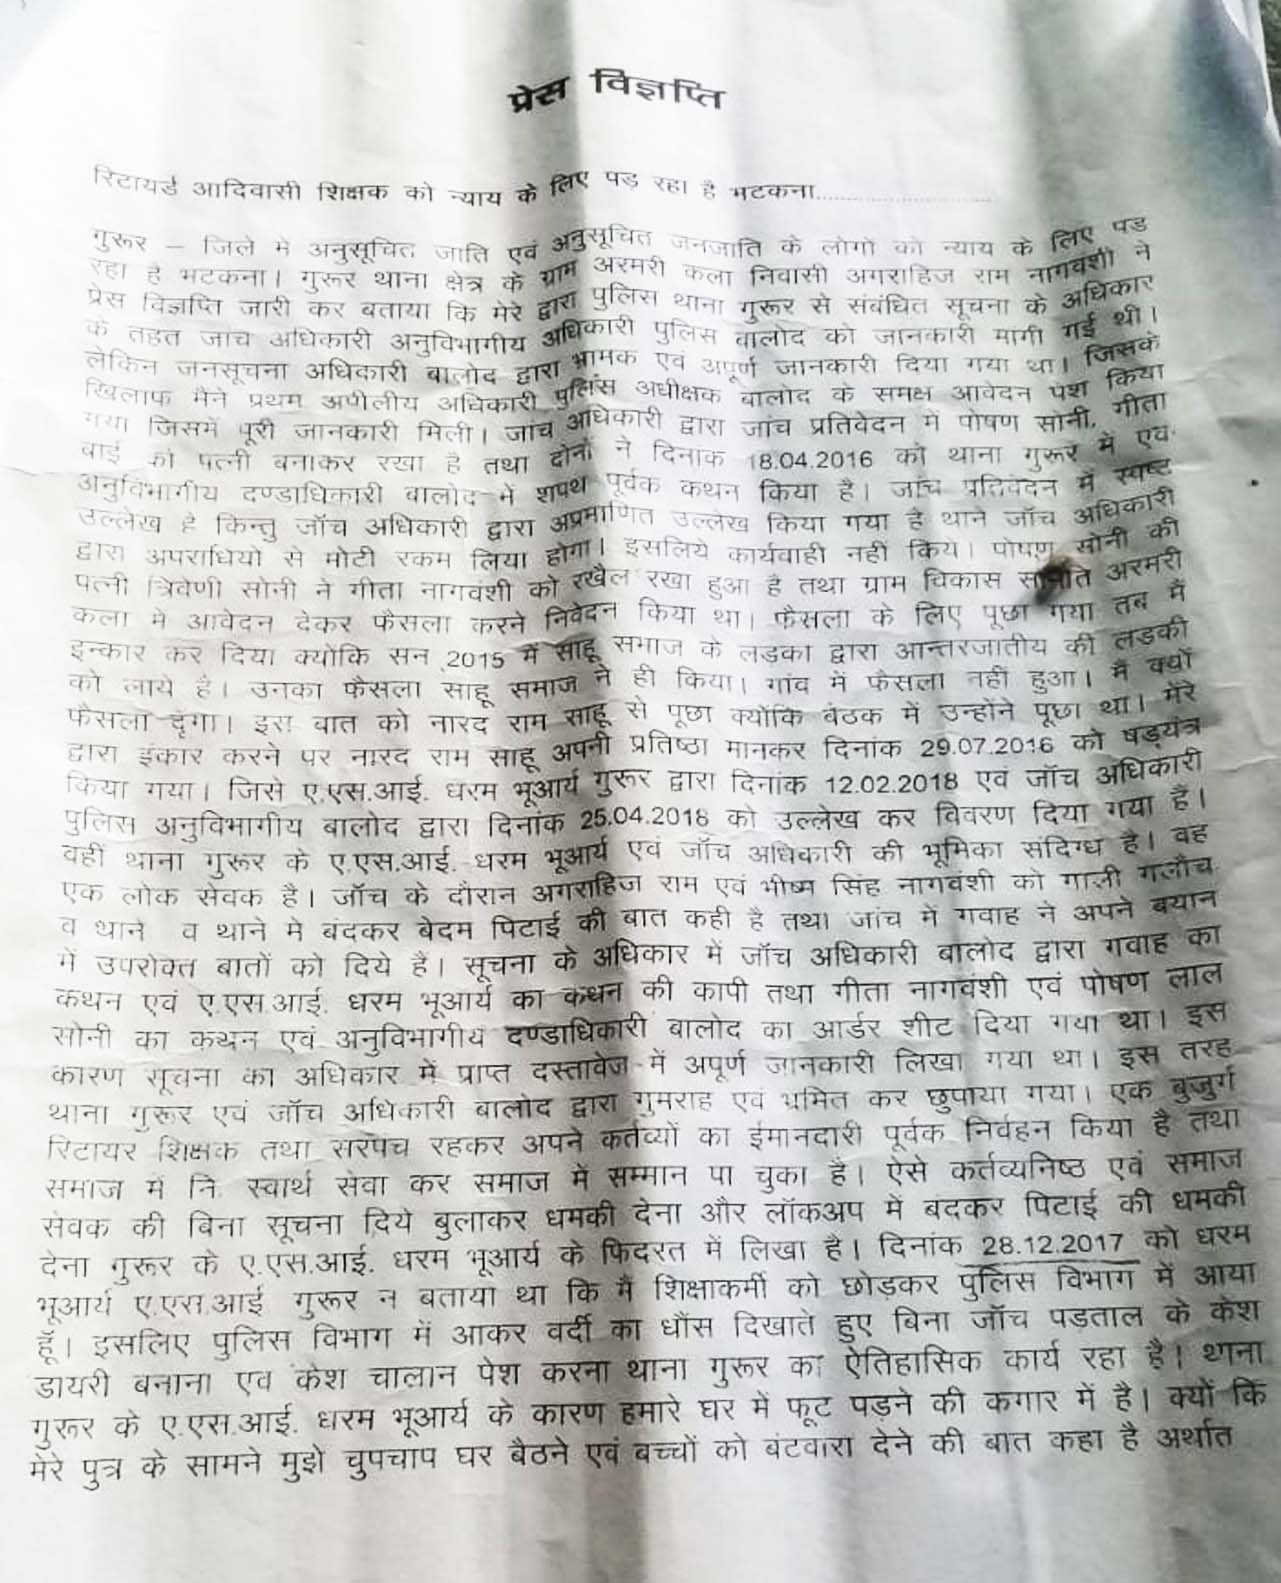 प्रेस विज्ञप्ति
रिटायर्ड आदिवासी शिक्षक को न्याय के लिए पड़ रहा है भटकना..............................
गुरूर – जिले में अनुसूचित जाति एवं अनुसूचित जनजाति के लोगों को न्याय के लिए पड़
रहा है भटकना। गुरूर थाना क्षेत्र के ग्राम अरमरी कला निवासी अगराहिज राम नागवंशी ने
प्रेस विज्ञप्ति जारी कर बताया कि मेरे द्वारा पुलिस थाना गुरूर से संबंधित सूचना के अधिकार
के तहत जांच अधिकारी अनुविभागीय अधिकारी पुलिस बालोद को जानकारी मांगी गई थी।
लेकिन जनसूचना अधिकारी बालोद द्वारा भ्रामक एवं अपूर्ण जानकारी दिया गया था। जिसके
खिलाफ मैने प्रथम अपीलीय अधिकारी पुलिस अधीक्षक बालोद के समक्ष आवेदन पेश किया
गया जिसमें पूरी जानकारी मिली। जांच अधिकारी द्वारा जांच प्रतिवेदन में पोषण सोनी, गीता
बाई को पत्नी बनाकर रखा है तथा दोनों ने दिनांक 18.04.2016 को थाना गुरूर में एवं
अनुविभागीय दण्डाधिकारी बालोद में शपथ पूर्वक कथन किया है। जांच प्रतिवेदन में स्पष्ट
उल्लेख है किन्तु जॉच अधिकारी द्वारा अप्रमाणित उल्लेख किया गया है थाने जॉच अधिकारी
द्वारा अपराधियो से मोटी रकम लिया होगा। इसलिये कार्यवाही नहीं किये। पोषण सोनी की
पत्नी त्रिवेणी सोनी ने गीता नागवंशी को रखैल रखा हुआ है तथा ग्राम विकास समिति अरमरी
कला मे आवेदन देकर फैसला करने निवेदन किया था। फैसला के लिए पूछा गया तब मैं
इन्कार कर दिया क्योकि सन 2015 में साहू समाज के लडका द्वारा आन्तरजातीय की लडकी
को लाये है। उनका फैसला साहू समाज ने ही किया। गांव में फैसला नहीं हुआ। मैं क्यों
फैसला दूंगा। इस बात को नारद राम साहू से पूछा क्योकि बैठक में उन्होंने पूछा था। मेरे
द्वारा इंकार करने पर नारद राम साहू अपनी प्रतिष्ठा मानकर दिनांक 29.07.2016 को षड़यंत्र
किया गया। जिसे ए.एस.आई. धरम भूआर्य गुरूर द्वारा दिनांक 12.02.2018 एवं जॉच अधिकारी
पुलिस अनुविभागीय बालोद द्वारा दिनांक 25.04.2018 को उल्लेख कर विवरण दिया गया हैं।
वहीं थाना गुरूर के ए.एस.आई. धरम भूआर्य एवं जॉच अधिकारी की भूमिका संदिग्ध है। वह
एक लोक सेवक है। जॉच के दौरान अगराहिज राम एवं भीष्म सिंह नागवंशी को गाली गलौच
व थाने व थाने मे बंदकर बेदम पिटाई की बात कही है तथा जांच में गवाह ने अपने बयान
में उपरोक्त बातों को दिये हैं। सूचना के अधिकार में जॉच अधिकारी बालोद द्वारा गवाह का
कथन एवं ए.एस.आई. धरम भूआर्य का कथन की कापी तथा गीता नागवंशी एवं पोषण लाल
सोनी का कथन एवं अनुविभागीय दण्डाधिकारी बालोद का आर्डर शीट दिया गया था। इस
कारण सूचना का अधिकार में प्राप्त दस्तावेज में अपूर्ण जानकारी लिखा गया था। इस तरह
थाना गुरूर एवं जॉच अधिकारी बालोद द्वारा गुमराह एवं भ्रमित कर छुपाया गया। एक बुजुर्ग
रिटायर शिक्षक तथा सरपंच रहकर अपने कर्तव्यों का ईमानदारी पूर्वक निर्वहन किया है तथा
समाज में नि. स्वार्थ सेवा कर समाज में सम्मान पा चुका है। ऐसे कर्तव्यनिष्ठ एवं समाज
सेवक की बिना सूचना दिये बुलाकर धमकी देना और लॉकअप में बंदकर पिटाई की धमकी
देना गुरूर के ए.एस.आई. धरम भूआर्य के फिदरत में लिखा है। दिनांक 28.12.2017 को धरम
भूआर्य ए.एस.आई गुरूर ने बताया था कि मैं शिक्षाकर्मी को छोड़कर पुलिस विभाग में आया
हूॅ। इसलिए पुलिस विभाग में आकर वर्दी का धौंस दिखाते हुए बिना जॉच पड़ताल के केश
डायरी बनाना एवं केश चालान पेश करना थाना गुरूर का ऐतिहासिक कार्य रहा है। थाना
गुरूर के ए.एस.आई. धरम भूआर्य के कारण हमारे घर में फूट पड़ने की कगार में है। क्यों कि
मेरे पुत्र के सामने मुझे चुपचाप घर बैठने एवं बच्चों को बंटवारा देने की बात कहा है अर्थात